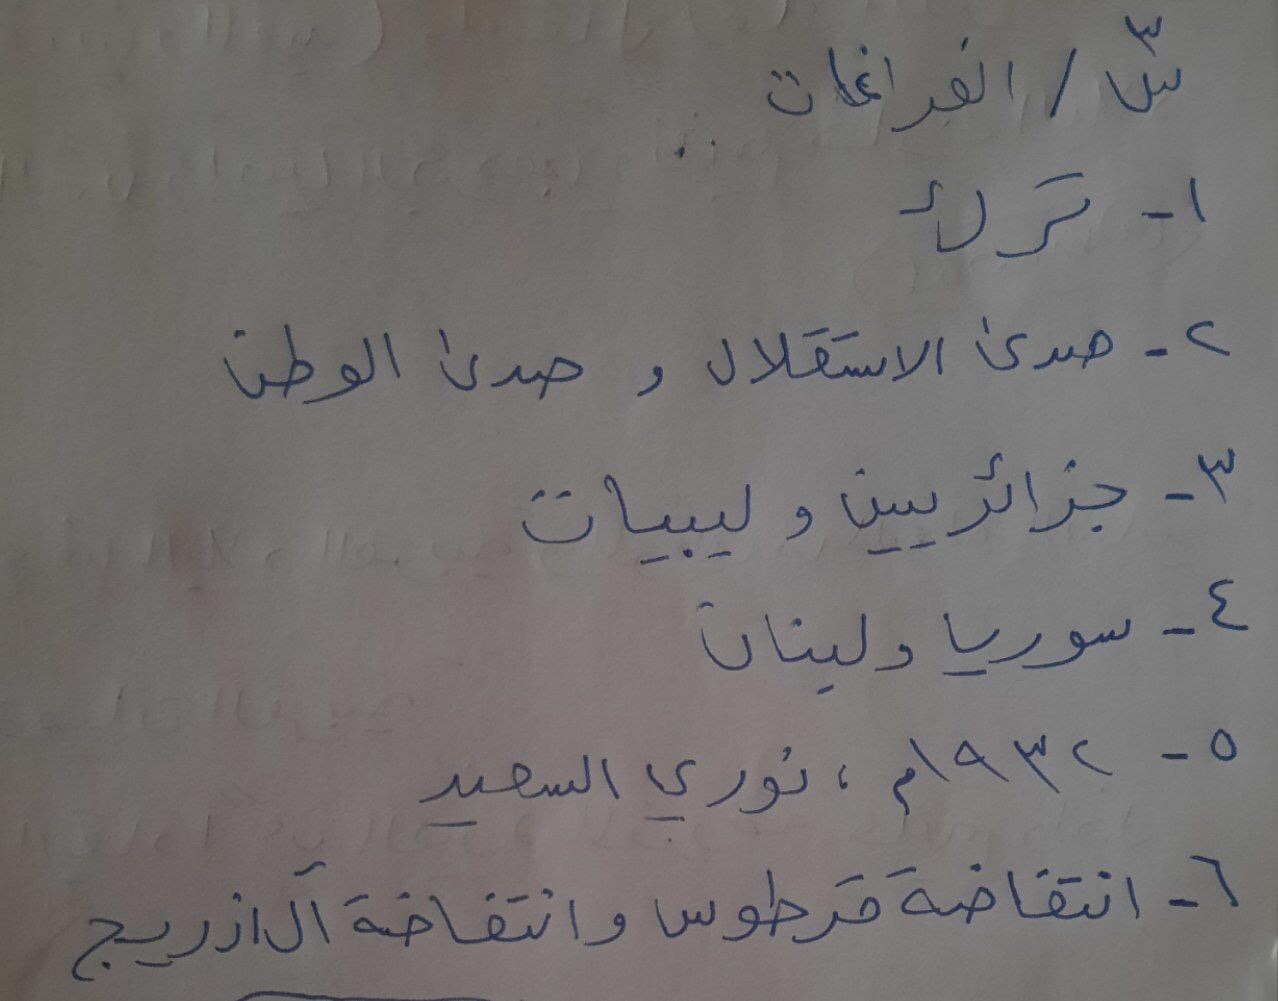 س٣ / الفراغات
١- ترك
٢- صدى الاستقلال و صدى الوطن
٣- جزائريين و ليبيات
٤- سوريا ولبنان
٥- ١٩٣٢م ، نوري السعيد
٦- انتفاضة قرطوس وانتفاضة آل ازريج